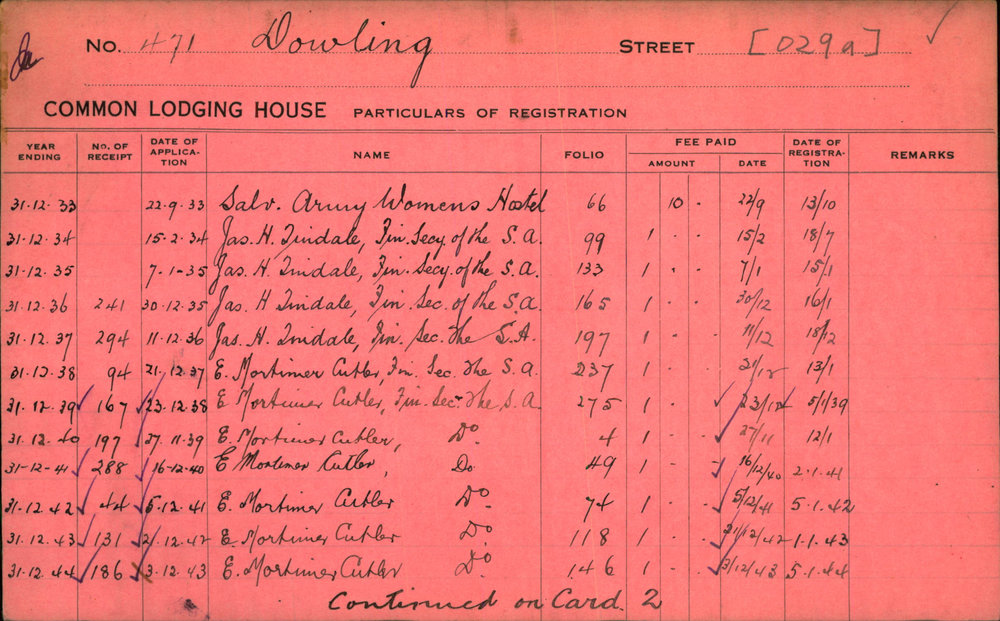 No. 471 Dowling STREET [029a]
COMMON LODGING HOUSE PARTICULARS OF REGISTRATION
YEAR ENDING No. OF RECEIPT DATE OF APPLICATION NAME FOLIO FEE PAID AMOUNT DATE DATE OF REGISTRATION REMARKS
31.12.33 22.9.33 Salv. Army Womens Hostel 66 10 . 22/9 13/10
31.12.34 15.2.34 Jas. H. Tindale, Fin. Secy. of the S.A. 99 1 . . 15/2 18/7
31.12.35 7.1.35 Jas. H. Tindale, Fin. Secy. of the S.A. 133 1 . . 7/1 15/1
31.12.36 241 30.12.35 Jas. H Tindale, Fin. Sec. of the S.A. 165 1 . . 30/12 16/1
31.12.37 294 11.12.36 Jas. H. Tindale, Fin. Sec. The S.A. 197 1 . . 11/12 18/12
31.12.38 94 21.12.37 E. Mortimer Cutler, Fin. Sec. The S.A. 237 1 . . 21/12 13/1
31.12.39 167 23.12.38 E Mortimer Cutler, Fin. Sec. The S.A. 275 1 . . 23/12 5/1/39
31.12.40 197 27.11.39 E. Mortimer Cutler, Do. 4 1 . . 27/11 12/1
31-12-41 288 16.12.40 E Mortimer Cutler, Do. 49 1 . . 16/12/40 2.1.41
31.12.42 44 5.12.41 E. Mortimer Cutler Do 74 1 . . 5/12/41 5.1.42
31.12.43 131 21.12.42 E. Mortimer Cutler Do 118 1 . . 21/12/42 1.1.43
31.12.44 186 3.12.43 E. Mortimer Cutler Do 146 1 . . 3/12/43 5.1.44
Continued on Card. 2